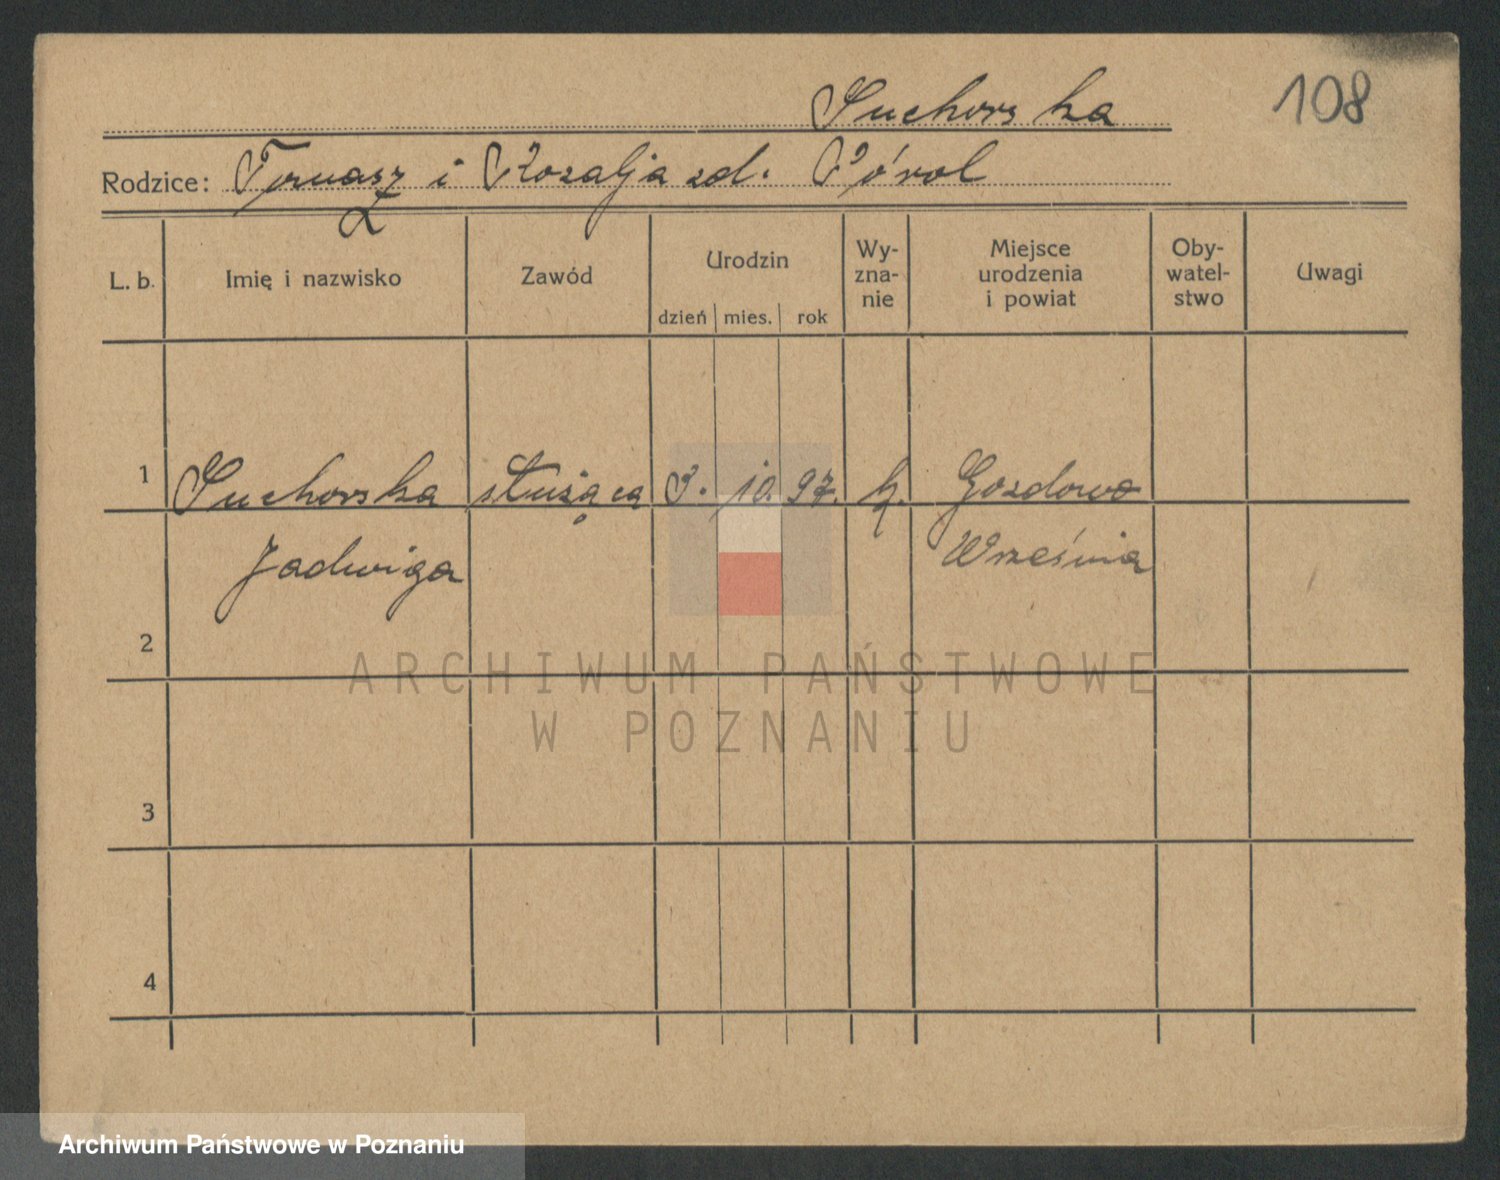 Suchorska
108
Rodzice: Tomasz i Rozalja zd. Król
L. b.
Imię i nazwisko
Zawód
Urodzin
dzień mies. rok
Wy-
zna-
nie
Miejsce
urodzenia
i powiat
Oby-
watel-
stwo
Uwagi
1 Suchorska służąca 3. 10. 97. k. Gozdowo
Jadwiga Września
2
3
4
ARCHIWUM PAŃSTWOWE
W POZNANIU
Archiwum Państwowe w Poznaniu